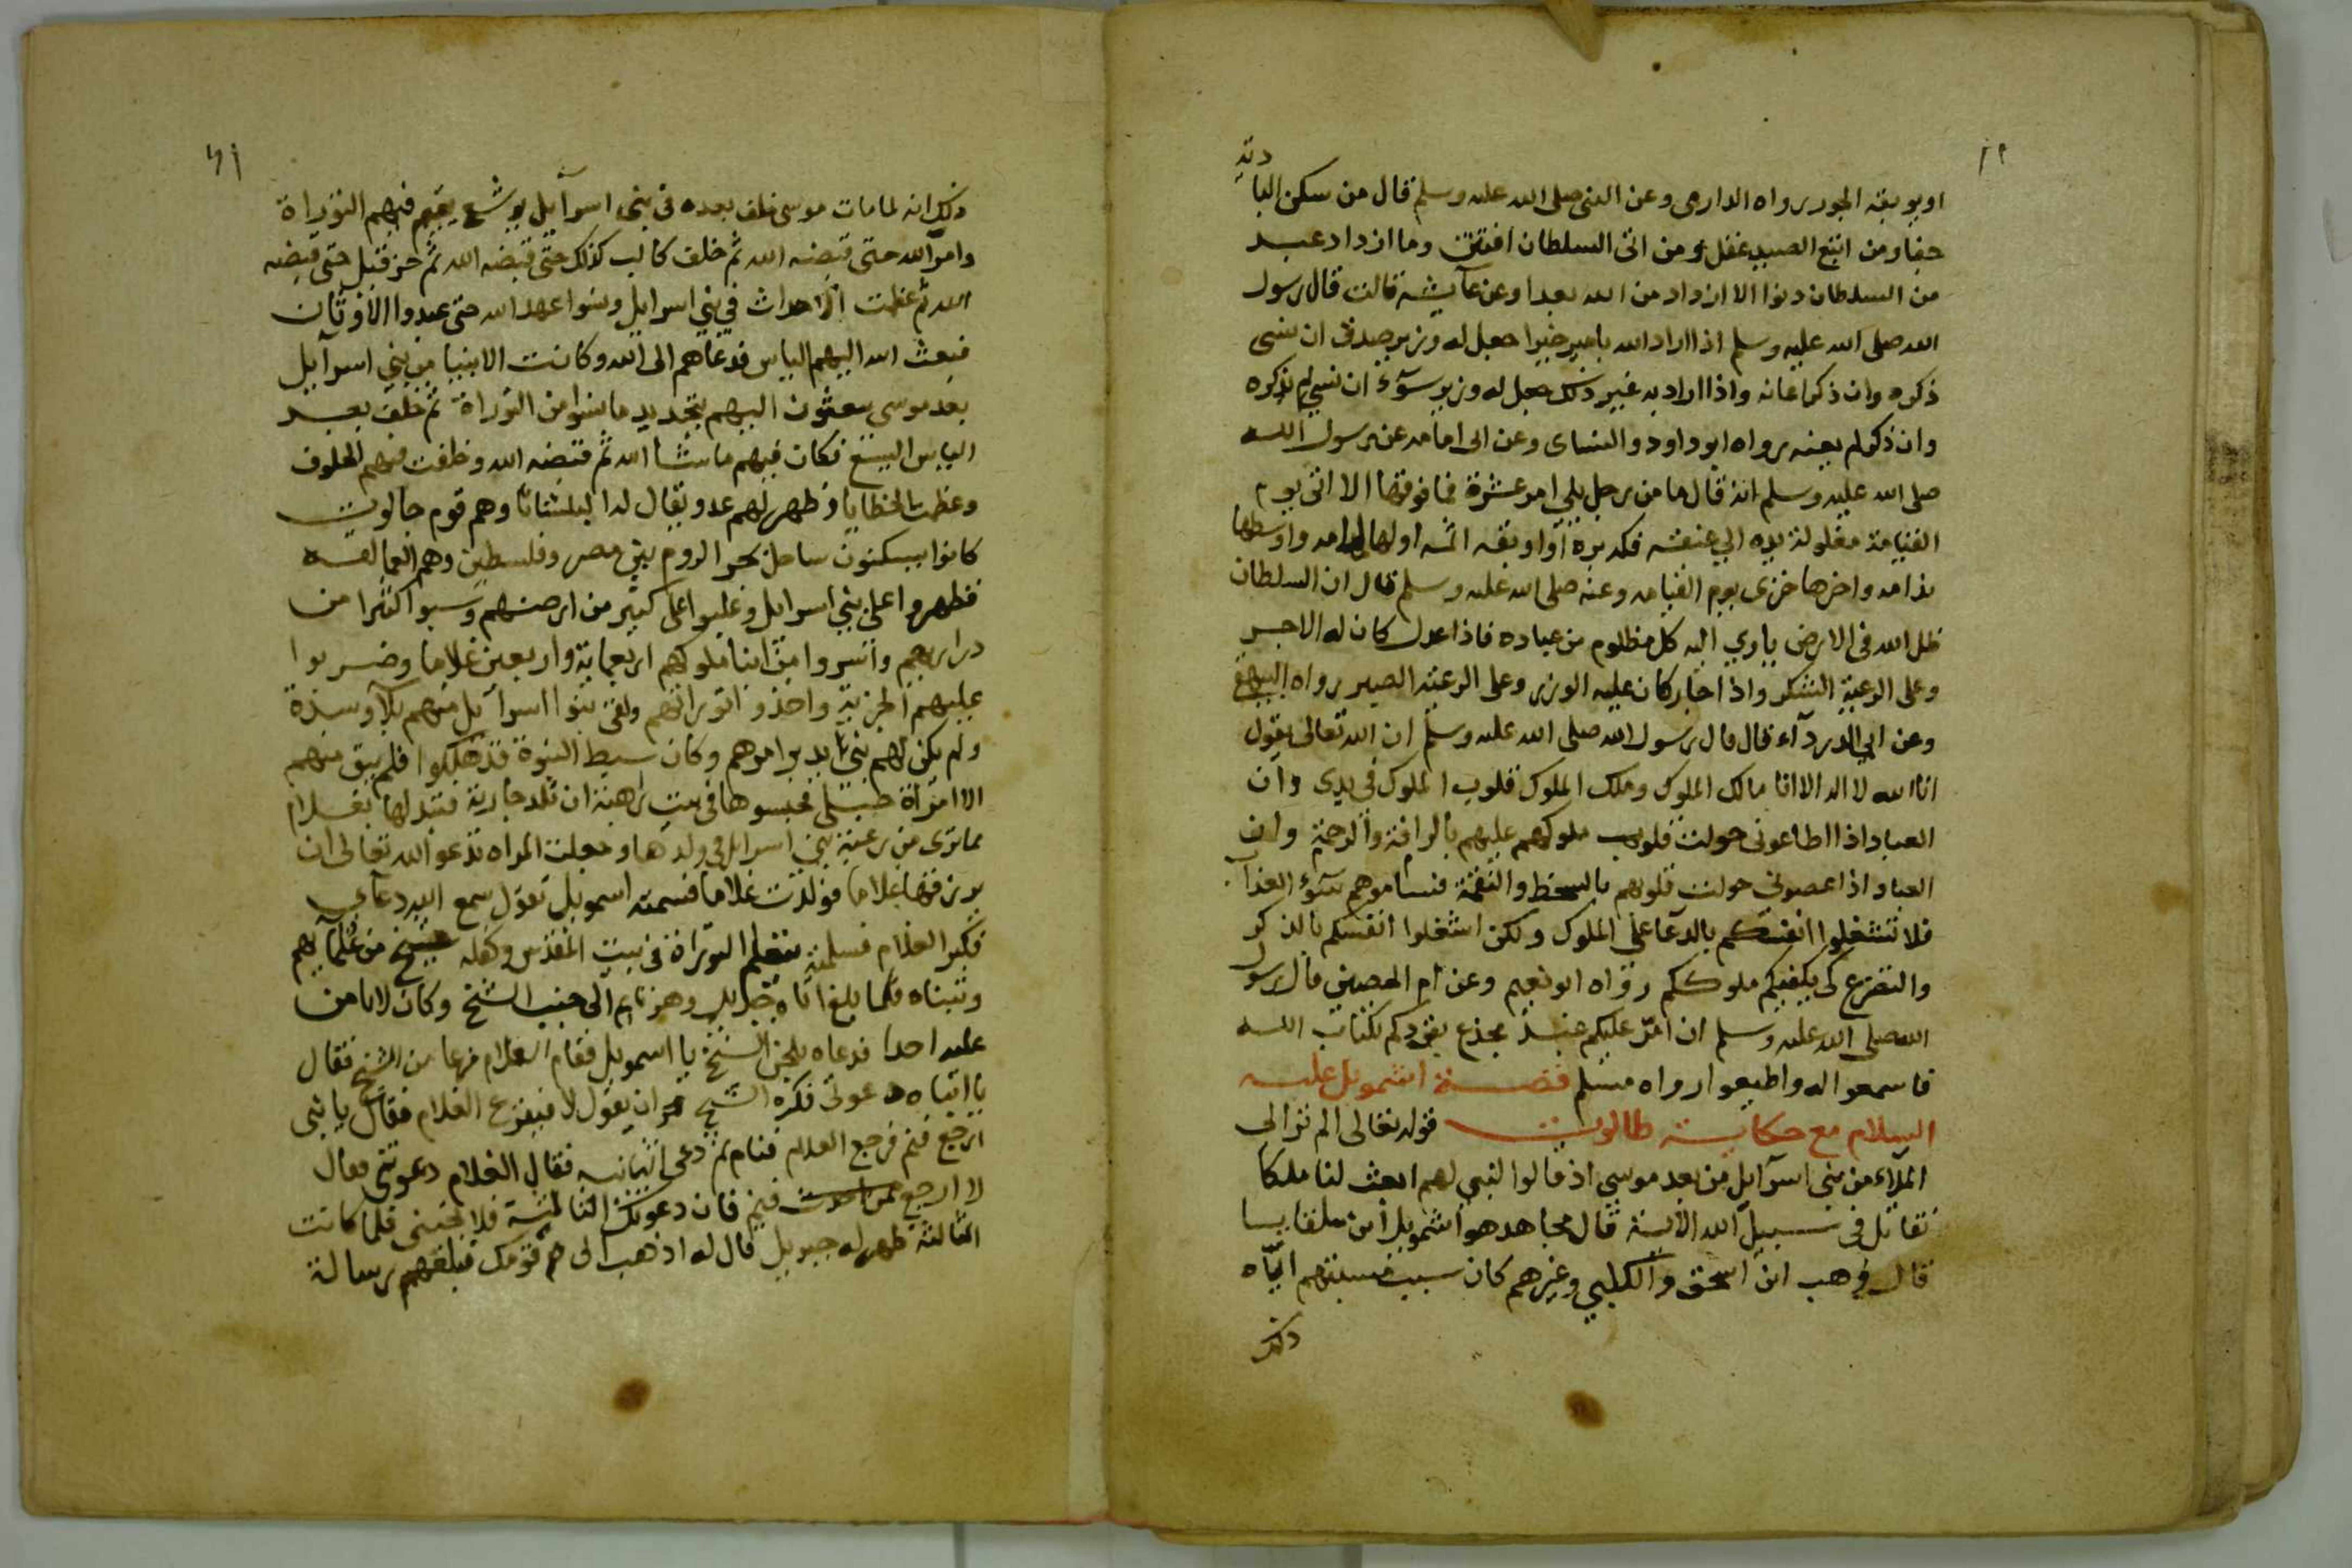 او يوبقه الجور رواه الدارمى وعن النبى صلى الله عليه وسلم قال من سكن البا
دية
جفا ومن اتبع الصيد غفل ومن اتى السلطان افتتن وما ازداد عبد
من السلطان دنوا الا ازداد من الله بعدا وعن عآيشة قالت قال رسول
الله صلى الله عليه وسلم اذا اراد الله بامير خيرا جعل له وزير صدق ان نسى
ذكره وان ذكر اعانه واذا اراد به غير ذلك جعل له وزير سوء ان نسي لم يذكره
وان ذكر لم يعنه رواه ابو داود والنساى وعن ابى امامه عن رسول الله
صلى الله عليه وسلم انه قال ما من رجل يلي امر عشرة فما فوقها الا اتى يوم
القيامة مغلولة يده الى عنقه فكه بره او اوبقه اثمه اولها ملامه واوسطها
ندامه واخرها خزى يوم القيامه وعنه صلى الله عليه وسلم قال ان السلطان
ظل الله فى الارض ياوي اليه كل مظلوم من عباده فاذا عدل كان له الاجر
وعلى الرعية الشكر واذا جار كان عليه الوزر وعلى الرعية الصبر رواه البيهقي
وعن ابي الدردآء قال قال رسول الله صلى الله عليه وسلم ان الله تعالى يقول
انا الله لا اله الا انا مالك الملوك وملك الملوك قلوب الملوك في يدى وان
العباد اذا اطاعونى حولت قلوب ملوكهم عليهم بالرافة والرحمة وان
العباد اذا عصونى حولت قلوبهم بالسخط والنقمة فساموهم سوء العذاب
فلا تشغلوا انفسكم بالدعآ على الملوك ولكن اشغلوا انفسكم بالذكر
والتضرع كى يكفيكم ملوككم رواه ابو نعيم وعن ام الحصين قال رسول
الله صلى الله عليه وسلم ان امر عليكم عبد مجدع يقودكم بكتاب الله
فاسمعوا له واطيعوا رواه مسلم قصة اشمويل عليه
السلام مع حكاية طالوت قوله تعالى الم تر الى
الملاء من بنى اسرآيل من بعد موسى اذ قالوا لنبي لهم ابعث لنا ملكا
نقاتل فى سبيل الله الآية قال مجاهد هو اشمويل ابن هلقايا
قال وهب ابن اسحق والكلبي وغيرهم كان سبب مسئلتهم اياه
ذلك
ذلك انه لما مات موسى خلف بعده فى بنى اسرآيل يوشع يقيم فيهم التوراة
وامر الله حتى قبضه الله ثم خلف كالب كذلك حتى قبضه الله ثم حزقيل حتى قبضه
الله ثم عظمت الاحداث في بني اسرايل ونسوا عهد الله حتى عبدوا الاوثان
فبعث الله اليهم الياس فدعاهم الى الله وكانت الانبيا من بني اسرآيل
بعد موسى يبعثون اليهم بتجديد ما نسوا من التوراة ثم خلف بعد
الياس اليسع فكان فيهم ما شآ الله ثم قبضه الله وخلفت فيهم الخلوف
وعظمت الخطايا وظهر لهم عدو يقال لها البلشاثا وهم قوم جالوت
كانوا يسكنون ساحل بحر الروم بين مصر وفلسطين وهم العمالقه
فظهروا على بني اسرايل وغلبوا على كثير من ارضهم وسبوا كثيرا من
ذراريهم واسروا من ابنا ملوكهم اربعماية واربعين غلاما وضربوا
عليهم الجزية واخذوا توراتهم ولقى بنوا اسرآيل منهم بلآ وشدة
ولم يكن لهم نبي يدبر امرهم وكان سبط النبوة قد هلكوا فلم يبق منهم
الا امراة حبلى فحبسوها فى بيت رهبة ان تلد جارية فتبدلها بغلام
لما ترى من رغبة بني اسرايل فى ولدها وجعلت المراه تدعو الله تعالى ان
يرزقها غلاما فولدت غلاما فسمته اسمويل تقول سمع الله دعآي
فكبر الغلام فسلمته يتعلم التوراة فى بيت المقدس وكفله شيخ من علمآيهم
وتبناه فلما بلغ اتاه جبرايل وهو نايم الى جنب الشيخ وكان لا يامن
عليه احدا فدعاه بلحن الشيخ يا اسمويل فقام الغلام فزعا من الشيخ فقال
يا ابتاه دعوتنى فكره الشيخ ان يقول لا فيفزع الغلام فقال يا بنى
ارجع فنم فرجع الغلام فنام ثم دعى الثانيه فقال الغلام دعوتنى فقال
لا ارجع فنم فان دعوتك الثالثة فلا تجبنى فلما كانت
الثالثة ظهر له جبريل قال له اذهب الى قومك فبلغهم رسالة